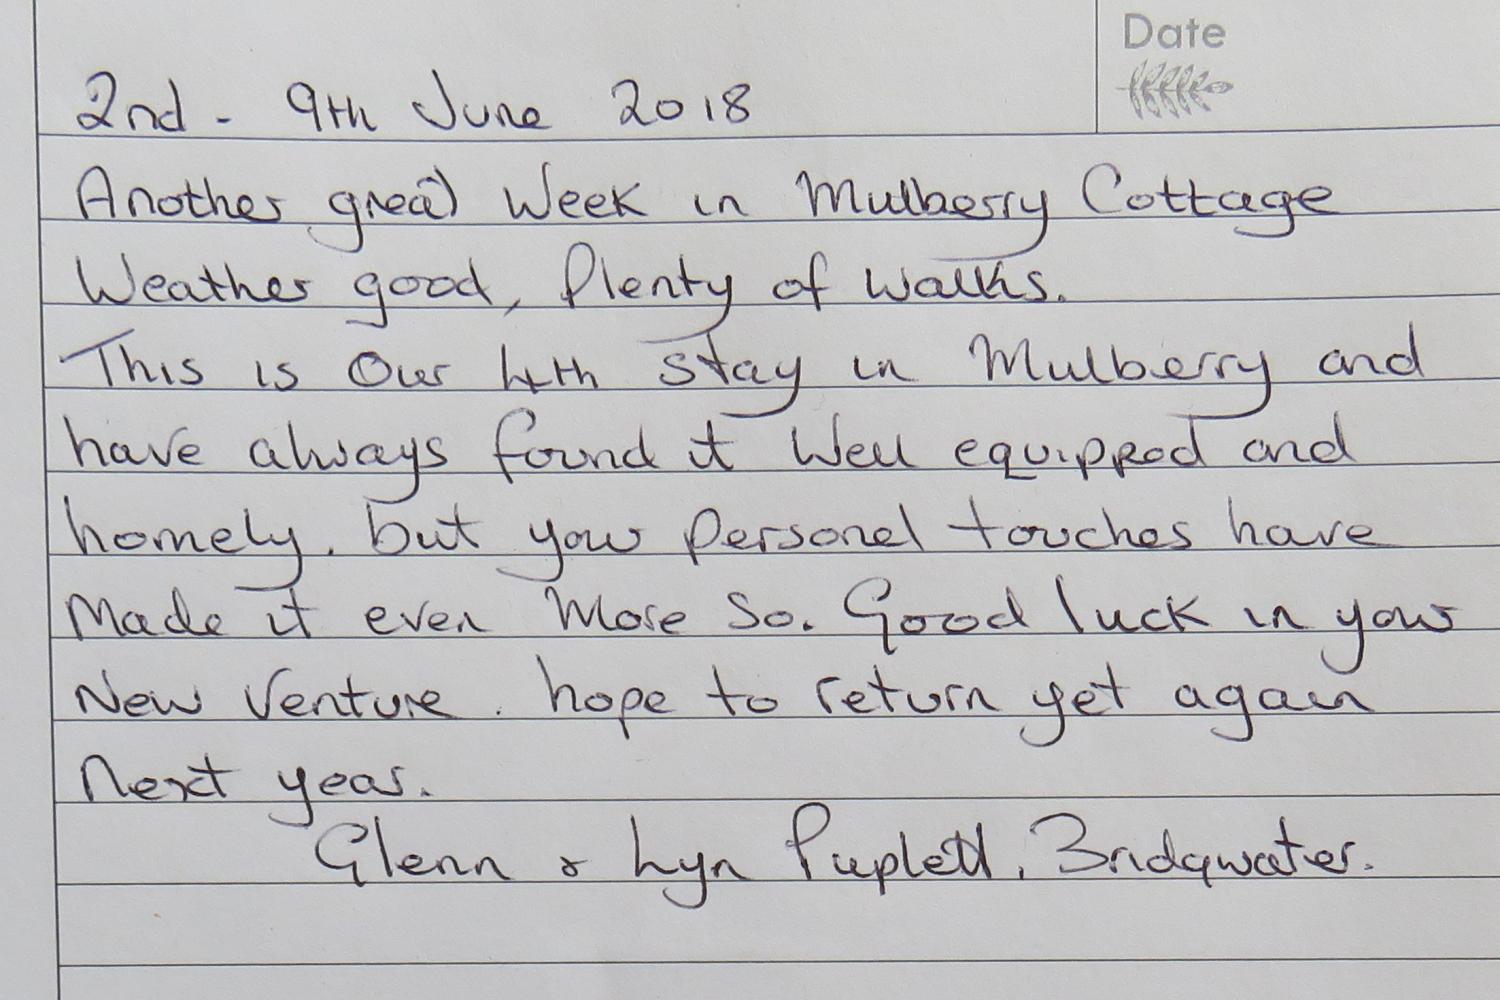 Date
2nd - 9th June 2018
Another great week in Mulberry Cottage
Weather good, Plenty of walks.
This is Our 4th stay in Mulberry and
have always found it Well equipped and
homely. but your Personal touches have
Made it even More So. Good luck in your
New Venture. hope to return yet again
Next year.
Glenn & Lyn Puplett, Bridgwater.